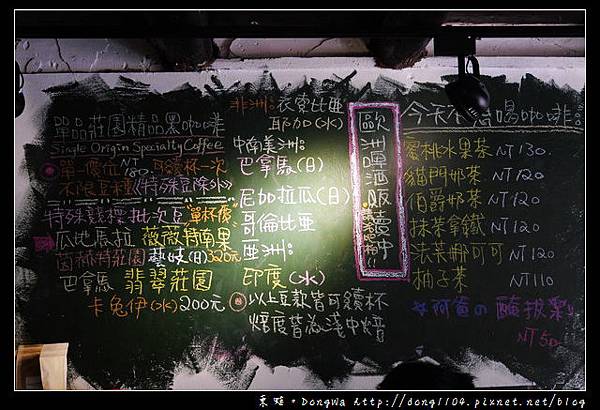 單品莊園精品黑咖啡
Single Origin Specialty Coffee
單一價位NT180.可續杯一次
不限豆種《特殊豆除外》
特殊競標批次豆 單杯價
瓜地馬拉 薇薇特南果
茵赫特莊園 藝妓(日)320元
巴拿馬 翡翠莊園
卡兔伊(水)200元
非洲:衣索比亞
耶加(水)
中南美洲:
巴拿馬(日)
尼加拉瓜(日)
哥倫比亞
亞洲:
印度(水)
◎以上豆款皆可續杯
焙度皆為淺中焙
歐洲啤酒販讀中!!
今天不想喝咖啡:
蜜桃水果茶 NT130.
貓門奶茶 NT120
伯爵奶茶 NT120
抹茶拿鐵 NT120
法芙娜可可 NT120
柚子茶 NT110
阿爸の 醃拔梨!
NT50
東華。DongWa http://dong1104.pixnet.net/blog